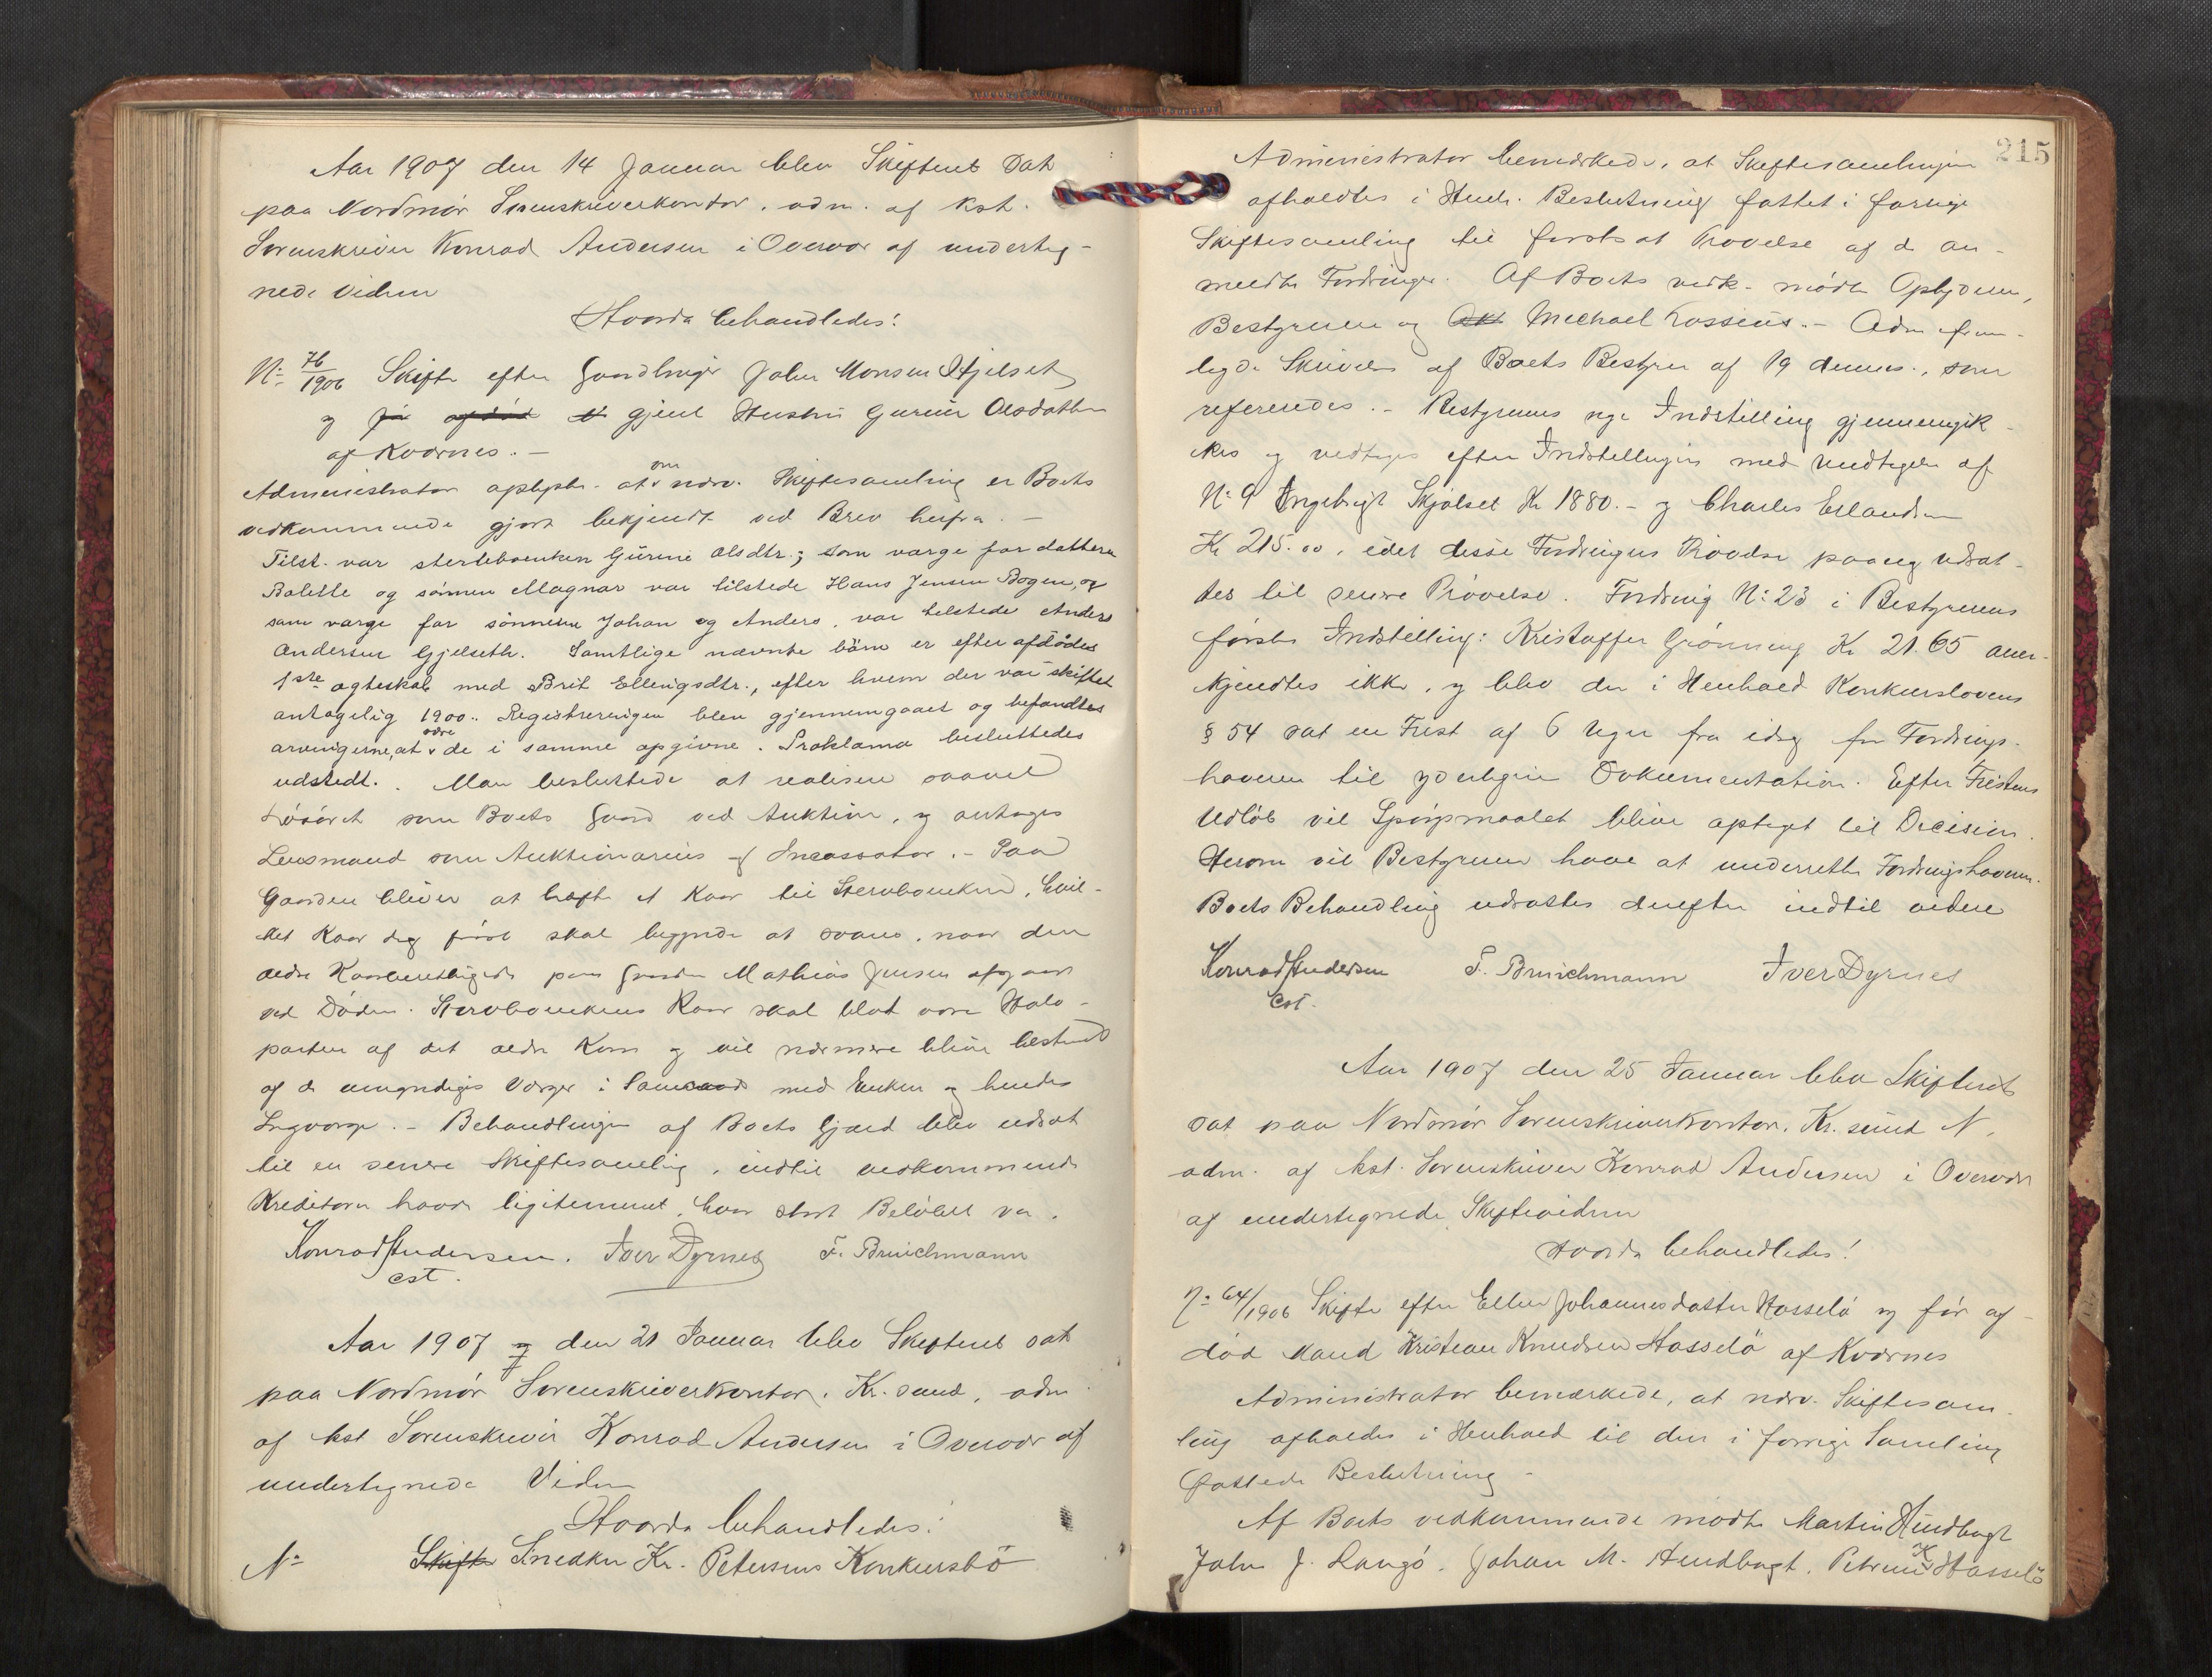 Aar 1907 den 14 Januar blev Skifteret sat
paa Nordmør Sorenskriverkontor, adm. af kst.
Sorenskriver Konrad Andersen i Overvær af underteg-
nede Vidner
Hvorda behandledes:
No 76/1906 Skifte efter Gaardbruger John Monsen Gjelset
og før afdød H gjenl Hustru Gurine Olsdatter
af Kværnes. -
Administrator oplyste at om nærv. Skiftesamling er Boets
vedkommende gjort bekjendt ved Brev herfra. -
Tilst. var sterboenken Gurine Olsdtr.; som værge for datteren
Bolette og sønnen Magnar var tilstede Hans Jensen Bogen, og
som værge for sønnerne Johan og Anders, var tilstede Anders
Andersen Gjelseth. Samtlige nævnte børn er efter afdødes
1ste ægteskab med Brit Ellingsdtr., efter hvem der var skiftet
antagelig 1900.. Registreringen blev gjennemgaaet og befandtes
arvingerne, at være de i samme opgivne. Proklama besluttedes
udstedt. . Man besluttede at realisere saavel
Løsøret som Boets Gaard ved Auktion, og antages
Lensmand som Auktionarius og Incassator. - Paa
Gaarden bliver at hæfte et Kaar til Stervboenken, hvil-
ket Kaar dog først skal begynde at svares, naar den
ældre Kaarberettigede paa Gaarden Mathias Jensen afgaar
ved Døden. Stervboenkens Kaar skal blot være Halv-
parten af det ældre Kaar og vil nærmere blive bestemt
af de umyndiges Værger i Samraad med Enken og hendes
Lagværge. - Behandlingen af Boets Gjæld blev udsat
til en senere Skiftesamling, indtil vedkommende
Kreditorer havde ligitimeret, hvor stort Beløbet var.
Konrad Andersen. Iver Dyrnes F. Bruichmann
cst.
Aar 1907 og den 21 Januar blev Skifteret sat
paa Nordmør Sorenskriverkontor, Kr.sund, adm.
af kst Sorenskriver Konrad Andersen i Overvær af
undertegnede Vidner
Hvorda behandledes:
No Skifte Snedker Kr. Petersens Konkursbo
215
Administrator bemærkede, at Skiftesamlingen
afholdtes i Henh. Beslutning fattet i forrige
Skiftesamling til fortsat Prøvelse af de an-
meldte Fordringer. Af Boets vedk. mødte Opbyderen,
Bestyreren og Michael Lossius. - Adm frem-
lagde Skrivelse af Boets Bestyrer af 19 dennes, som
refereredes. - Bestyrerens nye Indstilling gjennemgik-
kes og vedtages efter Indstillingen med Undtagelse af
No 9 Ingebrigt Skjølset Kr 1880. - og Charles Erlandsen
Kr 215.00, idet disse Fordringers Prøvelse paany udsat-
tes til senere Prøvelse. Fordring No 23 i Bestyrerens
første Indstilling: Kristoffer Grønning Kr 21.65 aner-
kjendtes ikke, og blev der i Henhold Konkurslovens
§ 54 sat en Frist af 6 Uger fra idag for Fordrings-
haveren til yderligere Dokumentation. Efter Fristens
Udløb vil Spørgsmaalet blive optaget til Decision.
Herom vil Bestyreren have at underrette Fordringshaveren.
Boets Behandling udsattes derefter indtil videre
Konrad Andersen F. Bruichmann Iver Dyrnes
cst.
Aar 1907 den 25 Januar blev Skifteret
sat paa Nordmør Sorenskriverkontor, Kr.sund N,
adm. af kst. Sorenskriver Konrad Andersen i Overvær
af undertegnede Skiftevidner
Hvorda behandledes!
No 64/1906 Skifte efter Ellen Johannesdatter Hasselø og før af-
død Mand Kristian Knudsen Hasselø af Kværnes
Administrator bemærkede, at nærv. Skiftesam-
ling afholdes i Henhold til den i forrige Samling
fattede Beslutning -
Af Boets vedkommende mødte Martin Hendbugt
John J. Langø, Johan M. Hendbugt, Petrine K Hasselø